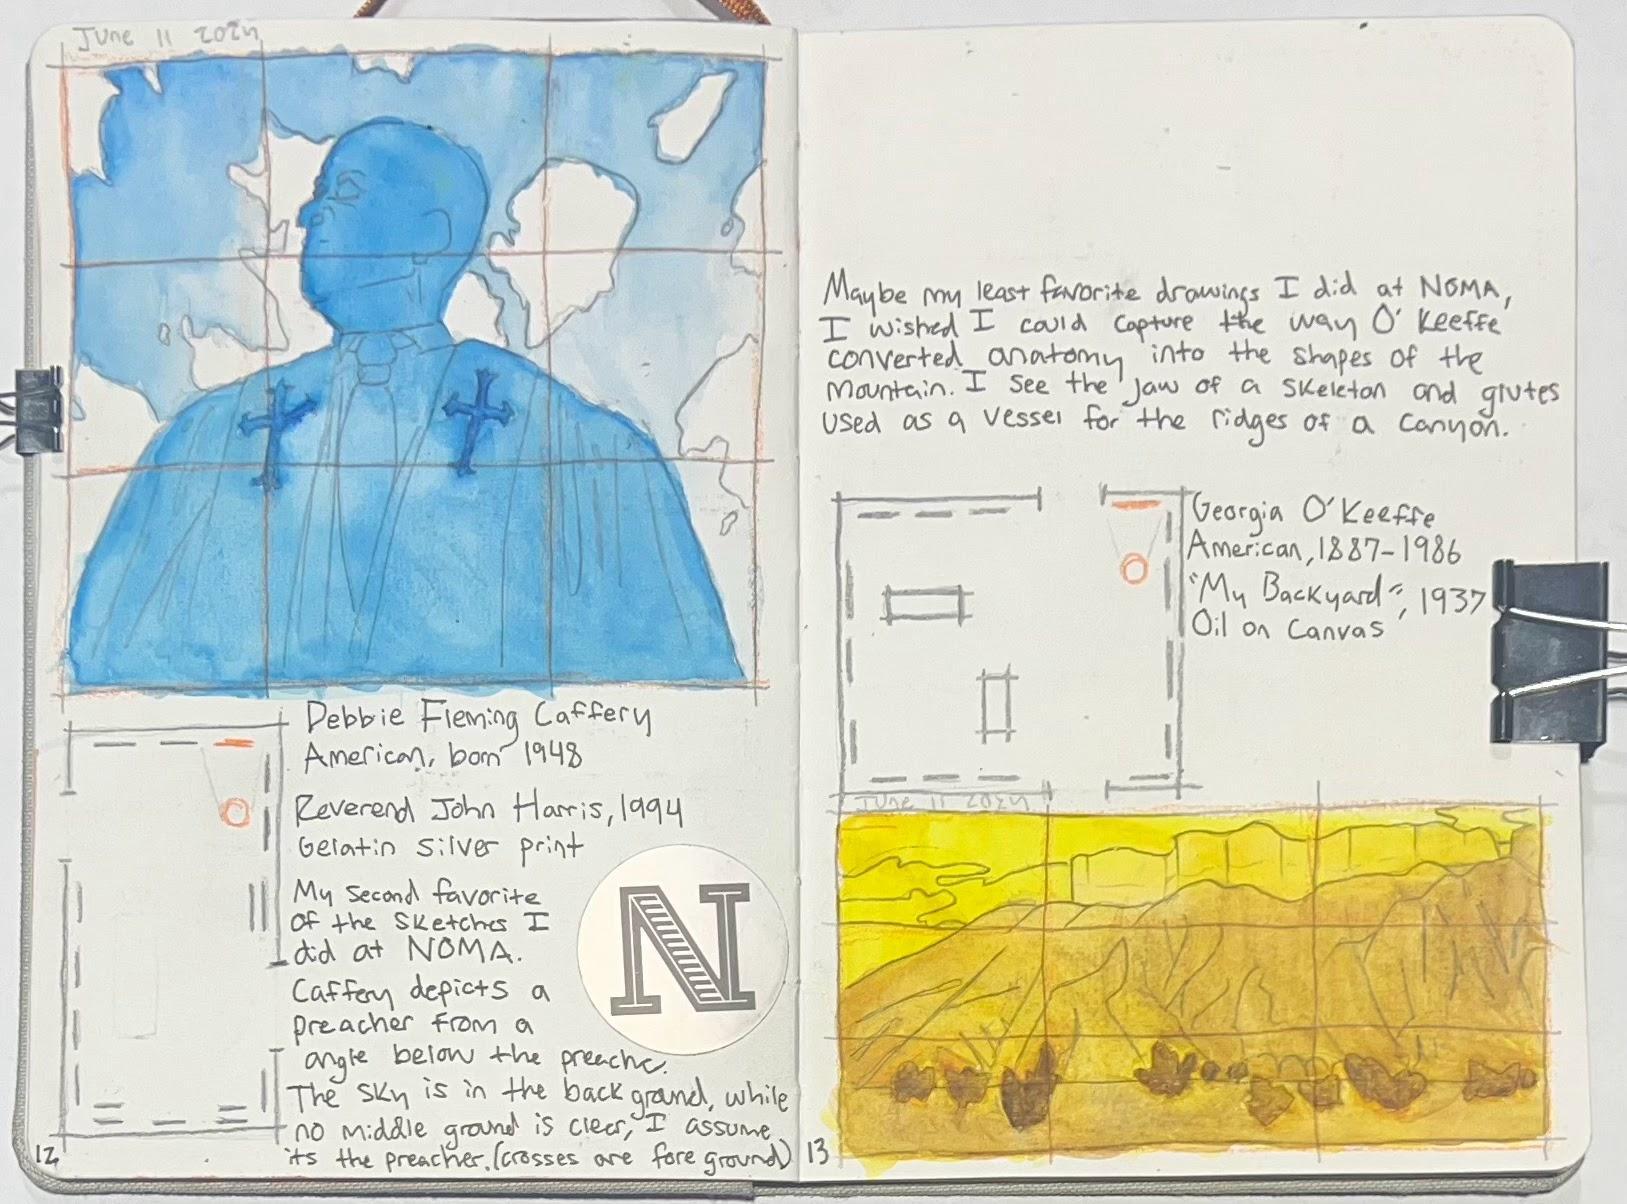 June 11 2024
Debbie Fleming Caffery
American, born 1948
Reverend John Harris, 1994
Gelatin silver print
My second favorite
of the sketches I
did at NOMA.
Caffery depicts a
preacher from a
angle below the preache.
The sky is in the back ground, while
no middle ground is clear, I assume
its the preacher. (crosses are fore ground)
N
12
Maybe my least favorite drawings I did at NOMA,
I wished I could capture the way O'Keeffe
converted anatomy into the shapes of the
mountain. I see the jaw of a skeleton and glutes
used as a vessel for the ridges of a canyon.
Georgia O'Keeffe
American, 1887-1986
"My Backyard", 1937
Oil on Canvas
June 11 2024
13